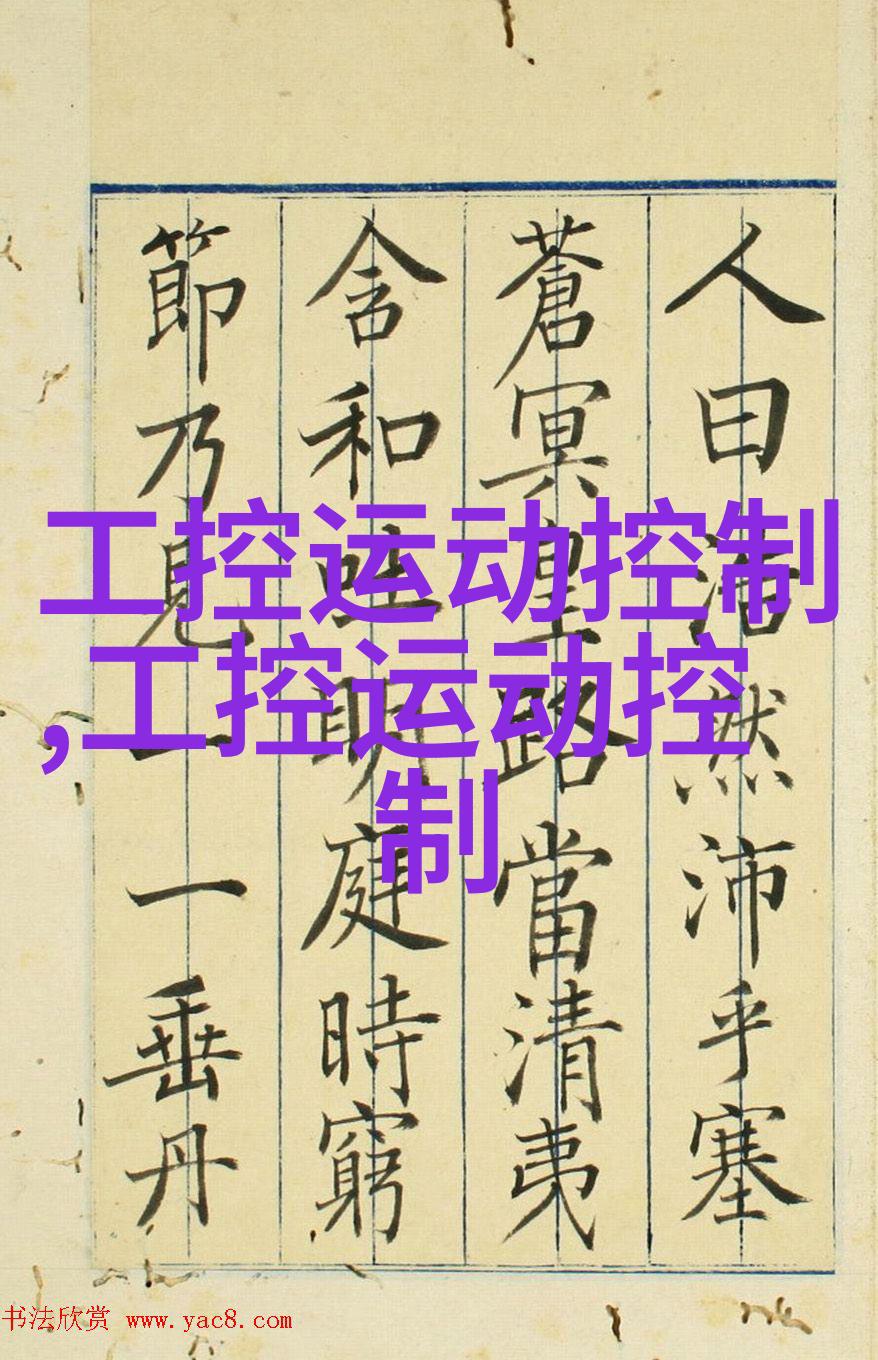 人曰浩然沛乎塞
蒼冥皇路當清夷
含和吐明庭時窮
節乃見一一垂丹
工控运动控制
,工控运动控
制
书法欣赏 www.yac8.com